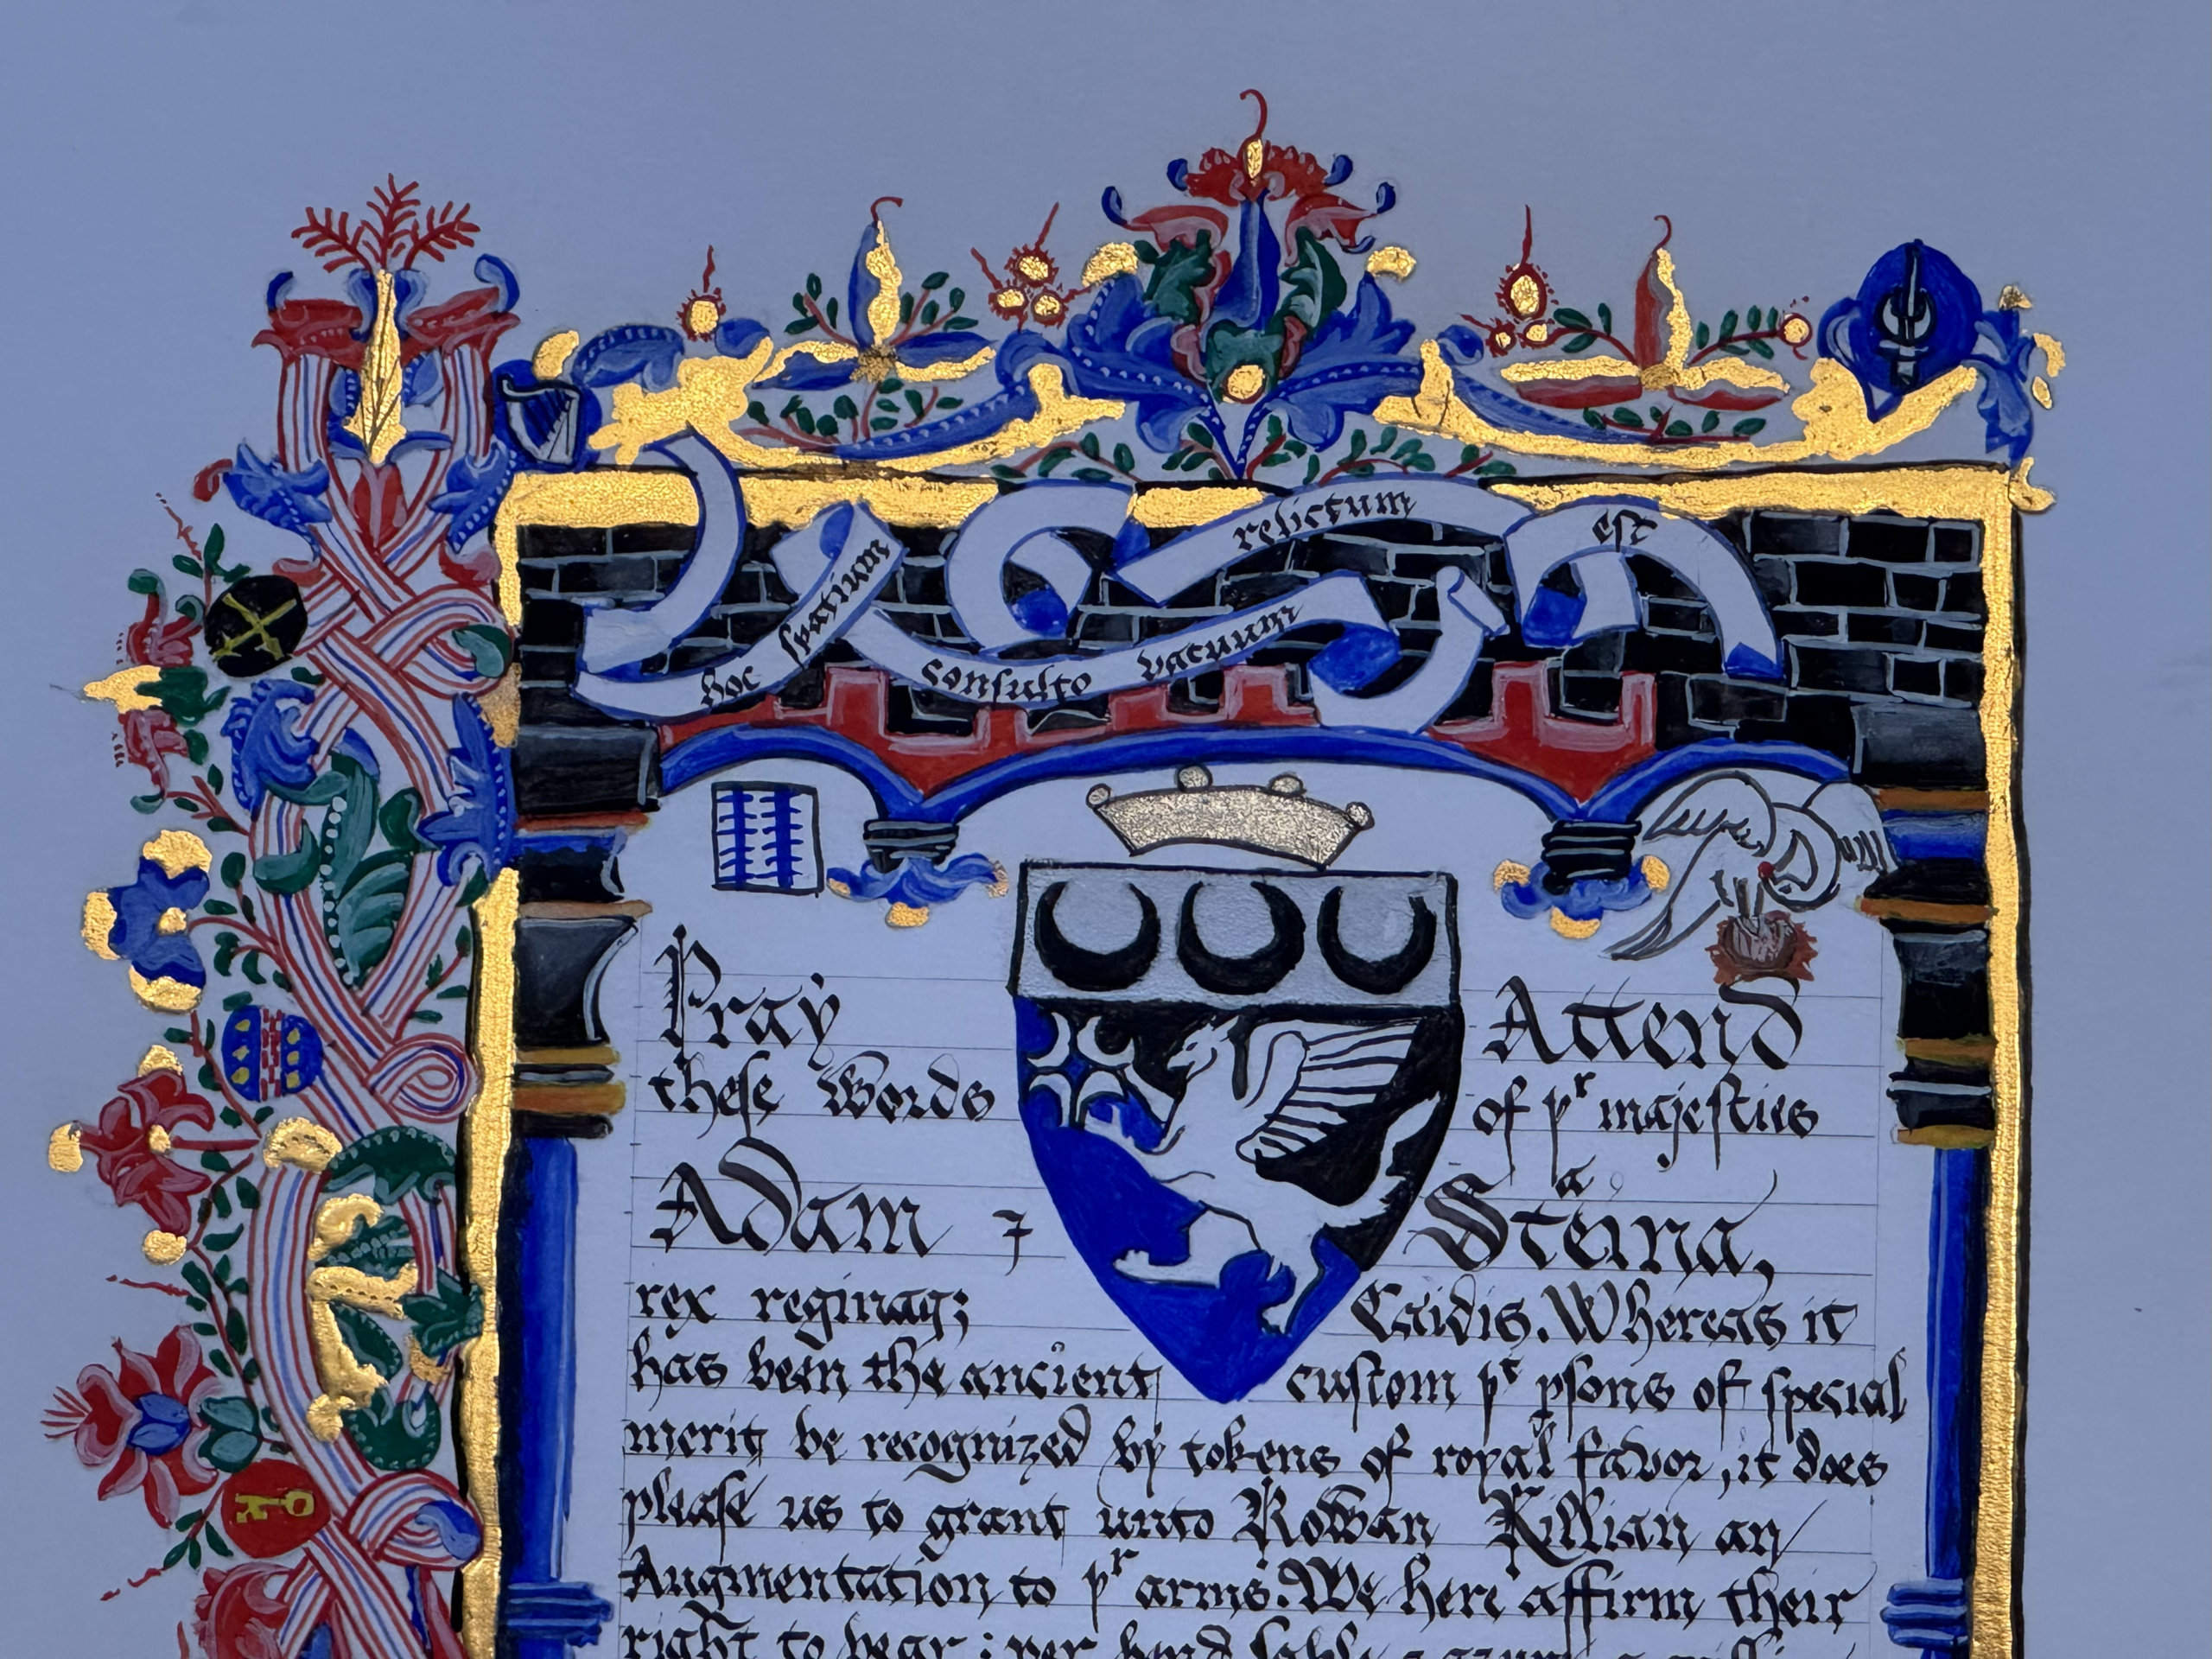 hoc spatium consulto vacuum relictum est
Pray Attend
these Words of pr majesties
Adam ⁊ Steina,
rex reginaqꝫ Caidis. Whereas it
has been the ancient custom pt psons of special
merit be recognized by tokens of royal favor, it does
please us to grant unto Rowan Killian an
Augmentation to pr arms. We here affirm their
right to bear : per bend sable